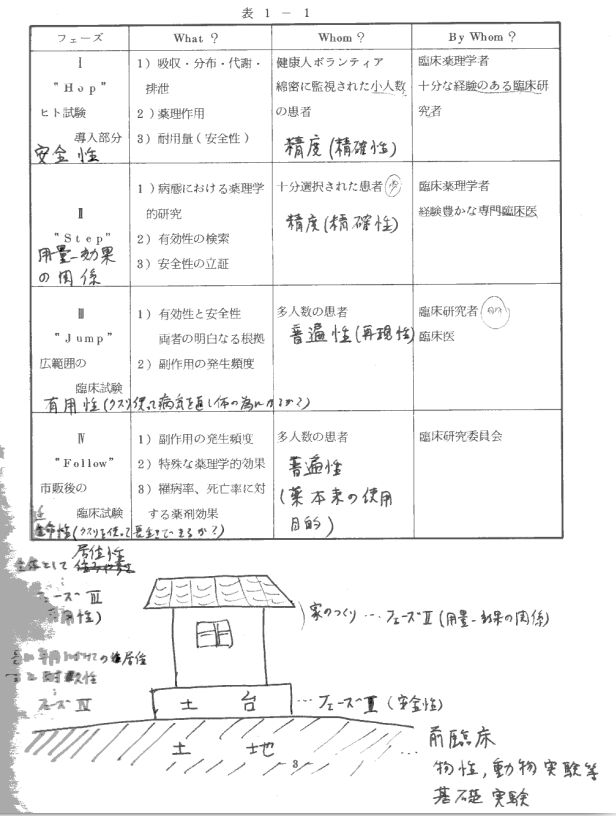 表 1 － 1
フェーズ What ? Whom ? By Whom ?
Ⅰ
"Hop"
ヒト試験
導入部分
安全性
1) 吸収・分布・代謝・
排泄
2) 薬理作用
3) 耐用量(安全性)
健康人ボランティア
綿密に監視された小人数
の患者
精度(精確性)
臨床薬理学者
十分な経験のある臨床研
究者
Ⅱ
"Step"
用量－効果
の関係
1) 病態における薬理学
的研究
2) 有効性の検索
3) 安全性の立証
十分選択された患者
精度(精確性)
臨床薬理学者
経験豊かな専門臨床医
Ⅲ
"Jump"
広範囲の
臨床試験
有用性(クスリ使って病気を直し体の為になるか？)
1) 有効性と安全性
両者の明白なる根拠
2) 副作用の発生頻度
多人数の患者
普遍性(再現性)
臨床研究者
臨床医
Ⅳ
"Follow"
市販後の
臨床試験
生命性(クスリを使って長生きできるか？)
1) 副作用の発生頻度
2) 特殊な薬理学的効果
3) 罹病率、死亡率に対
する薬剤効果
多人数の患者
普遍性
(薬本来の使用
目的)
臨床研究委員会
居住性
として
フェーズⅢ
用性)
家のつくり … フェーズⅡ (用量－効果の関係)
の居住
フェーズⅣ
土 台 … フェーズⅠ (安全性)
土 地 … 前臨床
物性, 動物実験等
基礎実験
－3－